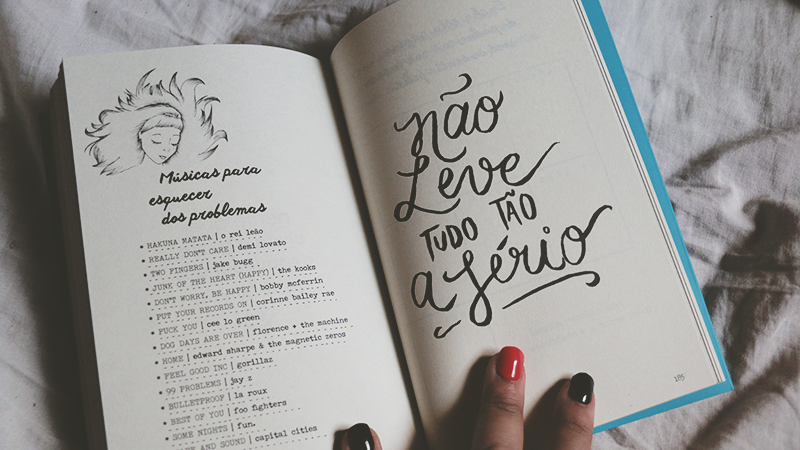 Músicas para
esquecer
dos problemas
• HAKUNA MATATA | o rei leão
• REALLY DON'T CARE | demi lovato
• TWO FINGERS | jake bugg
• JUNK OF THE HEART (HAPPY) | the kooks
• DON'T WORRY, BE HAPPY | bobby mcferrin
• PUT YOUR RECORDS ON | corinne bailey rae
• FUCK YOU | cee lo green
• DOG DAYS ARE OVER | florence + the machine
• HOME | edward sharpe & the magnetic zeros
• FEEL GOOD INC | gorillaz
• 99 PROBLEMS | jay z
• BULLETPROOF | la roux
• BEST OF YOU | foo fighters
• SOME NIGHTS | fun.
AND SOUND | capital cities
Não
Leve
TUDO TÃO
a Sério
185